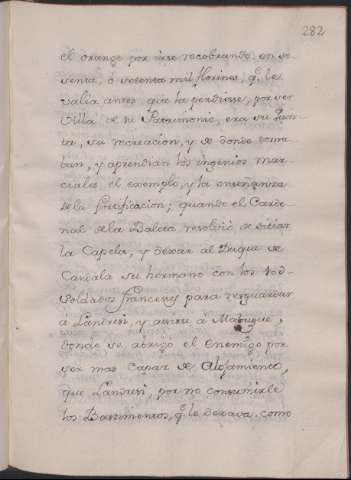 282
el orange por irse recobrando en se
senta, ó setenta mil florines, q.e le
valia antes que la perdiesse, por ser
Villa de su Patrimonio, era su
su recreacion, y de donde toma
ban, y aprendian los ingenios mar
ciales, el exemplo, y la enseñanza
de la fortificacion; quando el Carde
nal de la Baleta resolvió de sitiar
la Capela, y dexar al Duque de
Candala su hermano con los
Soldados franceses para resguardar
á Landresi, y á Mabuque,
donde se abrigó el Enemigo por
ser mas capaz de Alojamiento,
que Landresi, por no consumirle
los Bastimentos, q.e le dexava como